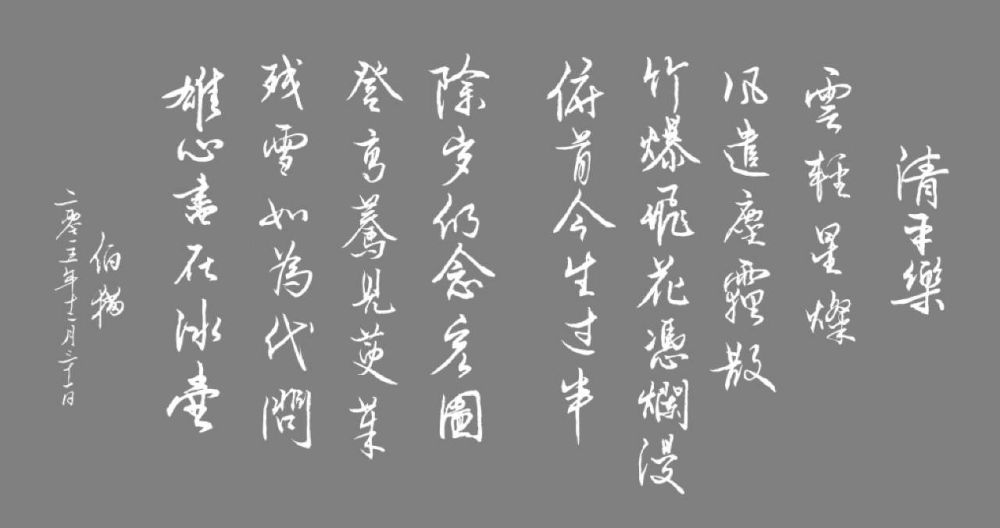 清平樂
雲輕星燦
风遣塵霾散
竹爆飛花憑爛漫
俯首今生过半
除岁仍念宏圖
登高驀見萸茱
残雪如為代問
雄心在冰壺
伯猫
二零五年十二月三十一日